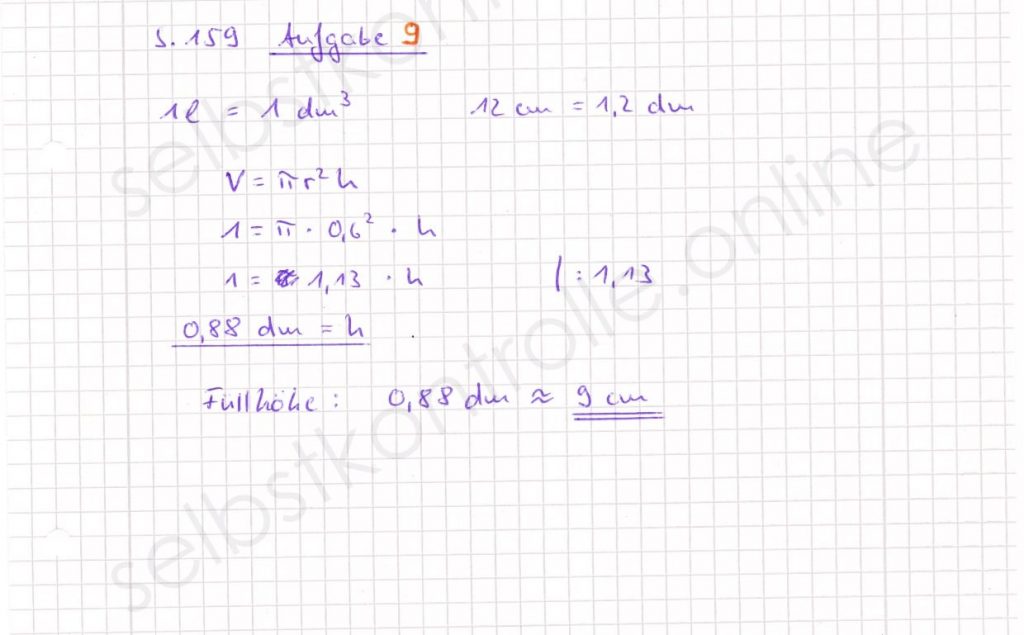 S. 159 Aufgabe 9
1l = 1 dm³ 12 cm = 1,2 dm
V = πr²h
1 = π · 0,6² · h
1 = 1,13 · h | : 1,13
0,88 dm = h
Füllhöhe: 0,88 dm ≈ 9 cm
selbstkontrolle.online
selbstkontrolle.online